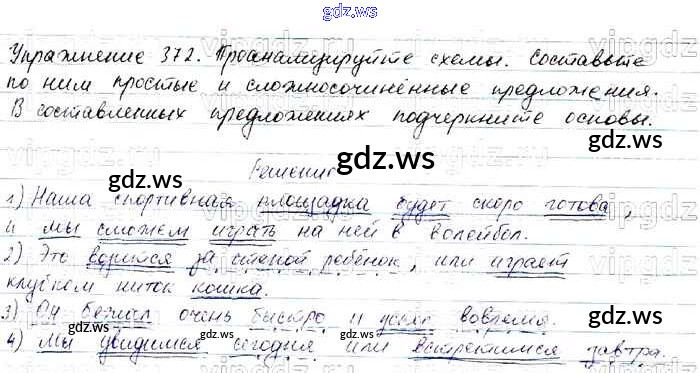 gdz.ws
Упражнение 372. Проанализируйте схемы. Составьте
по ним простые и сложносочинённые предложения.
В составленных предложениях подчеркните основы.
gdz.ws
Решение
gdz.ws gdz.ws
1) Наша спортивная площадка будет скоро готова,
и мы сможем играть на ней в волейбол.
2) Это возится за стеной ребёнок, или играет
клубком ниток кошка.
gdz.ws gdz.ws
3) Он бежал очень быстро и успел вовремя.
4) Мы увидимся сегодня или встретимся завтра.
gdz.ws